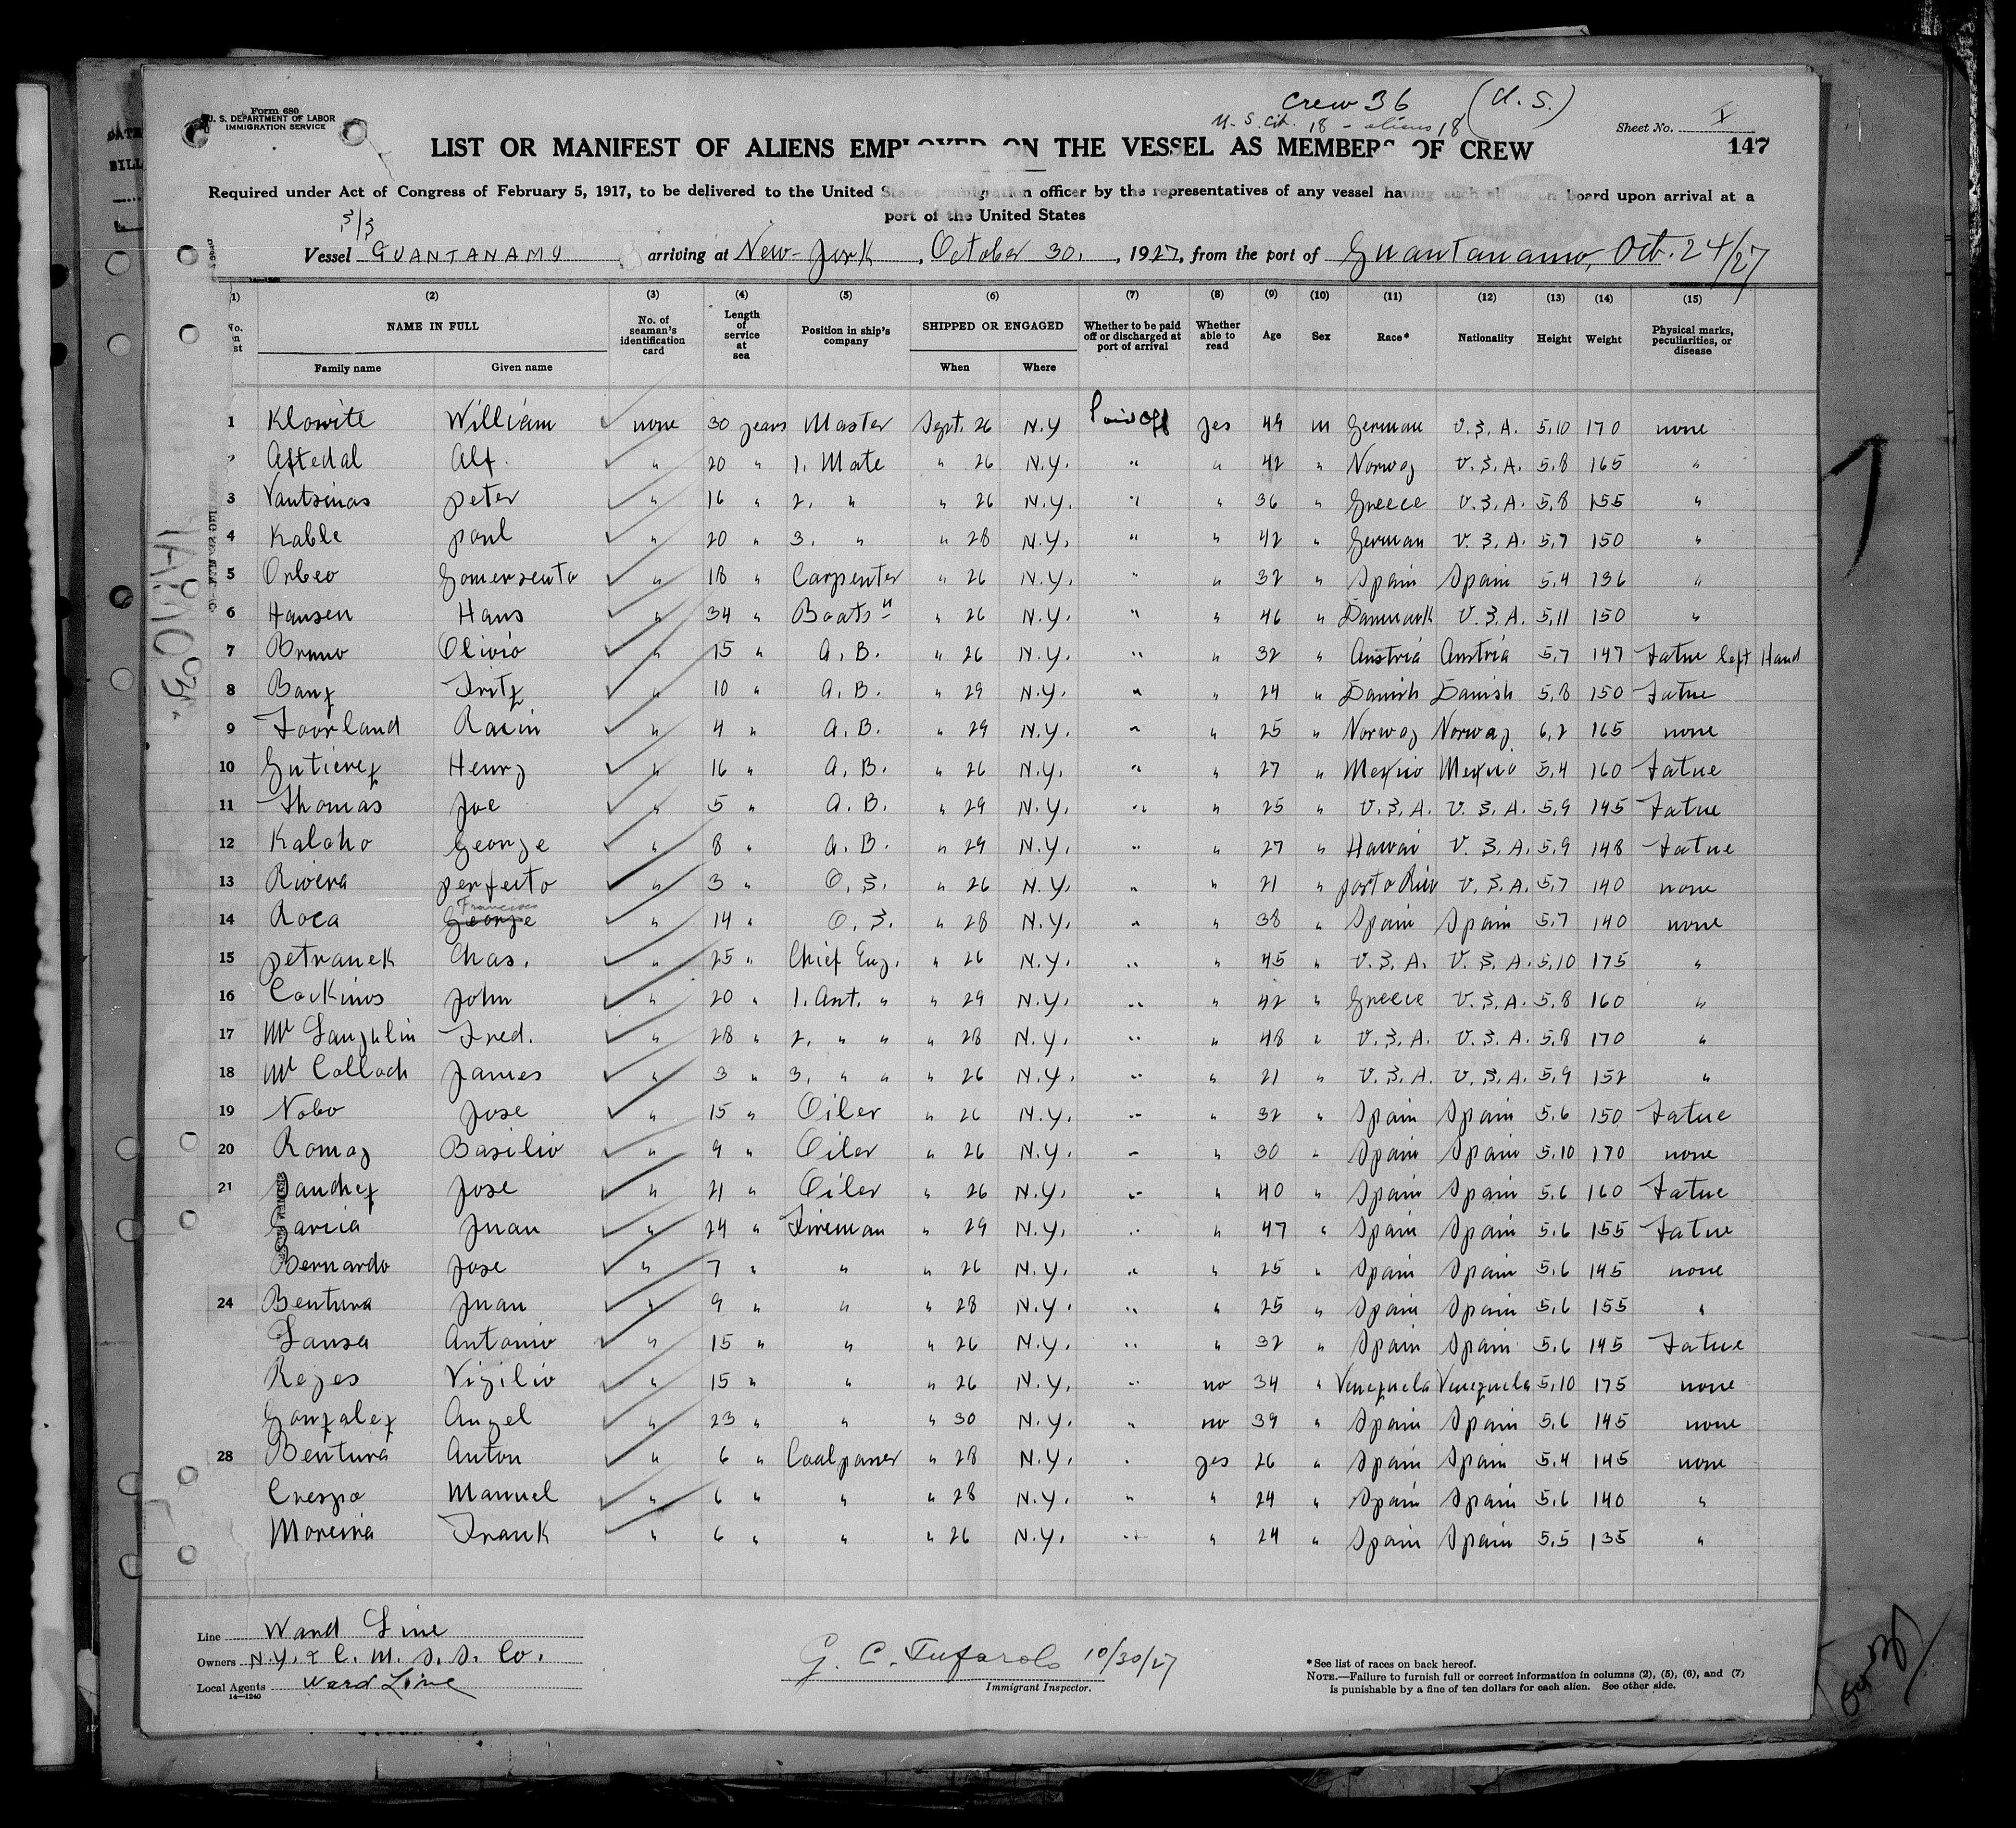 Form 680
U. S. DEPARTMENT OF LABOR
IMMIGRATION SERVICE
Crew 36 (U. S.)
U. S. Cit. 18 - aliens 18
Sheet No. I
147
LIST OR MANIFEST OF ALIENS EMPLOYED ON THE VESSEL AS MEMBERS OF CREW
Required under Act of Congress of February 5, 1917, to be delivered to the United States Immigration officer by the representatives of any vessel having such aliens on board upon arrival at a
port of the United States
S/S
Vessel GUANTANAMO arriving at New-York, October 30, 1927, from the port of Guantanamo, Oct. 24/27
(1) (2) (3) (4) (5) (6) (7) (8) (9) (10) (11) (12) (13) (14) (15)
NAME IN FULL No. of seaman's identification card Length of service at sea Position in ship's company SHIPPED OR ENGAGED Whether to be paid off or discharged at port of arrival Whether able to read Age Sex Race* Nationality Height Weight Physical marks, peculiarities, or disease
Family name Given name When Where
1 Klowite William none 30 years Master Sept. 26 N.Y Paid off yes 49 m German U.S.A. 5,10 170 none
Aftedal Alf. " 20 " 1. Mate " 26 N.Y. " " 42 " Norway U.S.A. 5,8 165 "
3 Vantsinas peter " 16 " 2. " " 26 N.Y. " " 36 " Greece U.S.A. 5,8 155 "
4 Kable paul " 20 " 3. " " 28 N.Y. " " 42 " German U.S.A. 5,7 150 "
5 Orbeo Gomersento " 18 " Carpenter " 26 N.Y. " " 32 " Spain Spain 5,4 136 "
6 Hansen Hans " 34 " Boats" " 26 N.Y. " " 46 " Danmark U.S.A. 5,11 150 "
7 Bruno Olivio " 15 " A.B. " 26 N.Y. " " 32 " Austria Austria 5,7 147 Tatue left Hand
8 Banz Fritz " 10 " A.B. " 29 N.Y. " " 24 " Danish Danish 5,8 150 Tatue
9 Foorland Racin " 4 " A.B. " 29 N.Y. " " 25 " Norway Norway 6,2 165 none
10 Gutierez Henry " 16 " A.B. " 26 N.Y. " " 27 " Mexico Mexico 5,4 160 Tatue
11 Thomas Joe " 5 " A.B. " 29 N.Y. " " 25 " U.S.A. U.S.A. 5,9 145 Tatue
12 Kaloho George " 8 " A.B. " 29 N.Y. " " 27 " Hawai U.S.A. 5,9 148 Tatue
13 Rivera perfecto " 3 " O.S. " 26 N.Y. " " 21 " porto Rico U.S.A. 5,7 140 none
Francisco
14 Roca George " 14 " O.S. " 28 N.Y. " " 38 " Spain Spain 5,7 140 none
15 petranek Chas. " 25 " Chief Eng. " 26 N.Y. " " 45 " U.S.A. U.S.A. 5,10 175 "
16 Cockinos John " 20 " 1. Ant. " " 29 N.Y. " " 42 " Greece U.S.A. 5,8 160 "
17 Mc Laughlin Fred. " 28 " 2. " " " 28 N.Y. " " 48 " U.S.A. U.S.A. 5,8 170 "
18 Mc Colloch James " 3 " 3. " " " 26 N.Y. " " 21 " U.S.A. U.S.A. 5,9 152 "
19 Nobo Jose " 15 " Oiler " 26 N.Y. " " 32 " Spain Spain 5,6 150 Tatue
20 Romay Basilio " 9 " Oiler " 26 N.Y. " " 30 " Spain Spain 5,10 170 none
21 Sanchez Jose " 21 " Oiler " 26 N.Y. " " 40 " Spain Spain 5,6 160 Tatue
Garcia Juan " 24 " Fireman " 29 N.Y. " " 47 " Spain Spain 5,6 155 Tatue
Bernardo Jose " 7 " " " 26 N.Y. " " 25 " Spain Spain 5,6 145 none
24 Bentura Juan " 9 " " " 28 N.Y. " " 25 " Spain Spain 5,6 155 "
Lansa Antonio " 15 " " " 26 N.Y. " " 32 " Spain Spain 5,6 145 Tatue
Reyes Vigilio " 15 " " " 26 N.Y. " no 34 " Venezuela Venezuela 5,10 175 none
Gonzalez Angel " 23 " " " 30 N.Y. " no 39 " Spain Spain 5,6 145 none
28 Bentura Anton " 6 " Coalpaser " 28 N.Y. " yes 26 " Spain Spain 5,4 145 none
Crespo Manuel " 6 " " " 28 N.Y. " " 24 " Spain Spain 5,6 140 "
Moreira Frank " 6 " " " 26 N.Y. " " 24 " Spain Spain 5,5 135 "
Line Ward Line
Owners N.Y. & C. M. S. S. Co.
Local Agents Ward Line
14—1240
G. C. Tufarolo 10/30/27
Immigrant Inspector.
*See list of races on back hereof.
NOTE.—Failure to furnish full or correct information in columns (2), (5), (6), and (7)
is punishable by a fine of ten dollars for each alien. See other side.